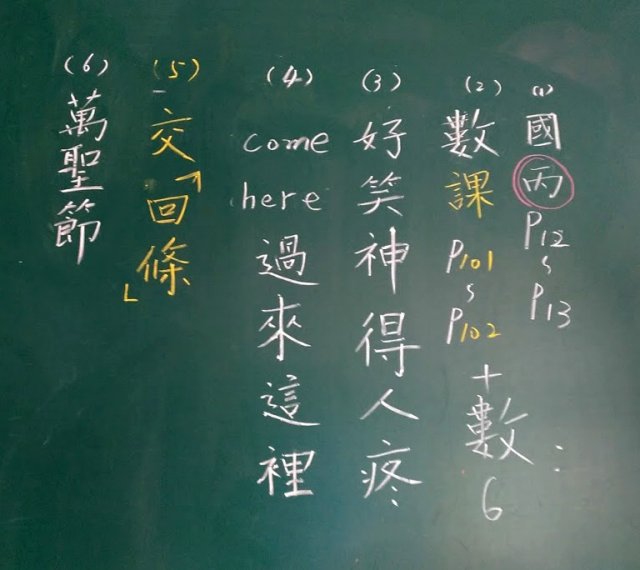 (1) 國丙 P12~P13
(2) 數課 P101~P102+數:6
(3) 好笑神得人疼
(4) come here 過來這裡
(5) 交「回條」
(6) 萬聖節